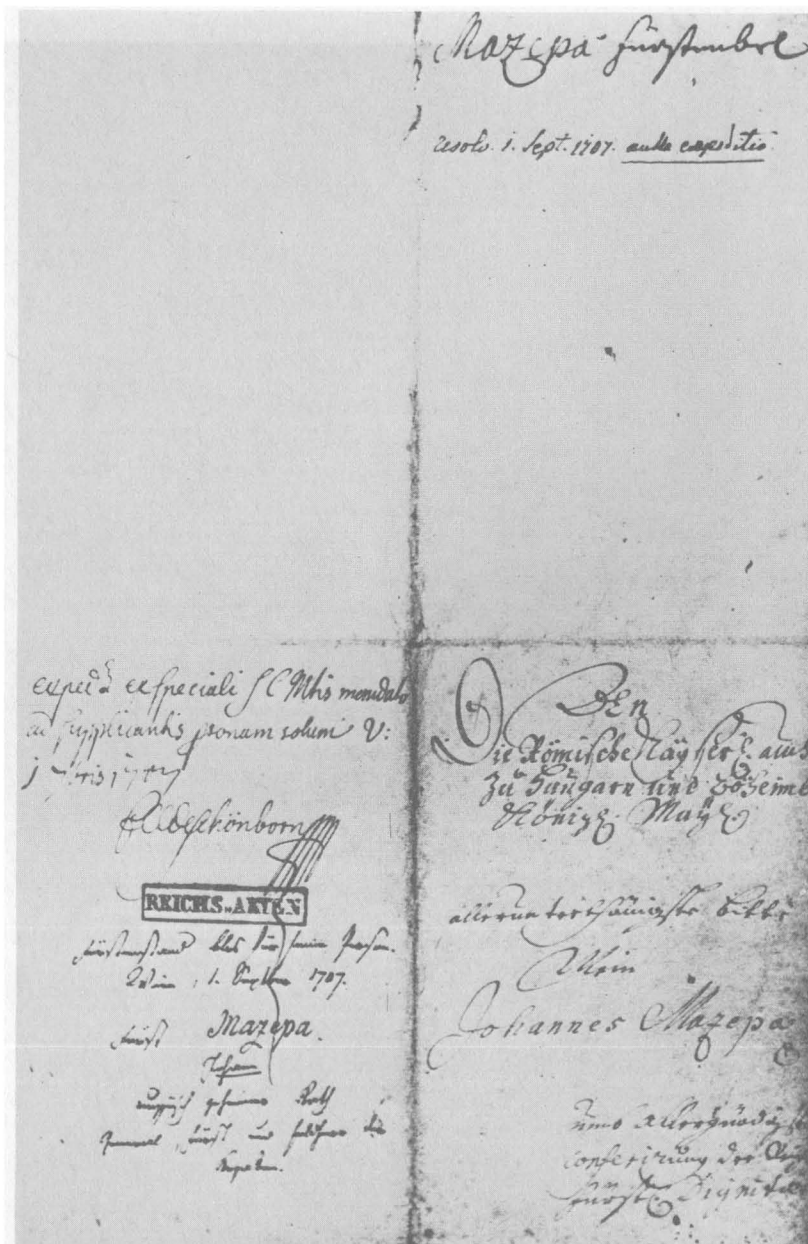 Mazepa Fürstenbrl
resolv. 1. Sept. 1707. nulla expeditio
exped. ex speciali S C Mtis mandato
ad supplicantis personam solum V:
1 7bris 1707
Schönborn
REICHS-AKTEN
Fürstenstand blos für seine Person.
Wien, 1. Septbr 1707.
Fürst Mazepa.
Johann
geheimer Rath
General, Fürst und der
DEn
Die Römische Käyserl. auch
Zu Hungarn und Böheimb
Königl. Mayl.
allerunterthänigste bitte
Mein
Johannes Mazepa
umb Allergnädig
conferirung der
Fürstl. Dignit